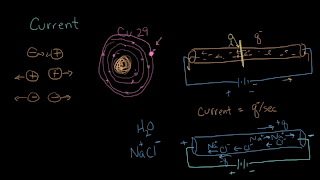 Current
Cu 29
q q⁻
- +
Current = q/sec
H₂O
Na⁺Cl⁻
+q
+ Na⁺ Cl⁻ Cl⁻ Na⁺ Na⁺ -
-q
+ -